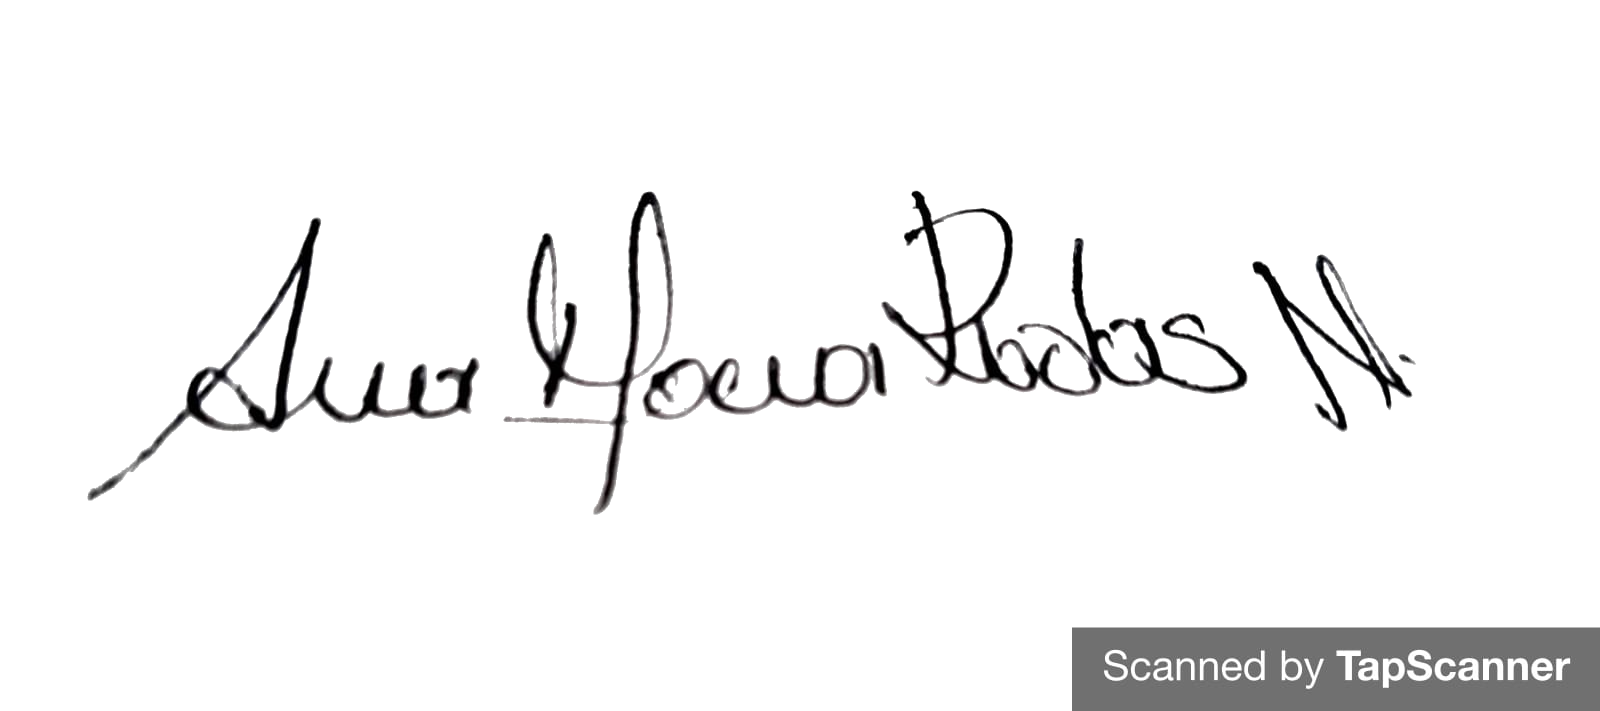 Ana Maria Rodas N.
Scanned by TapScanner